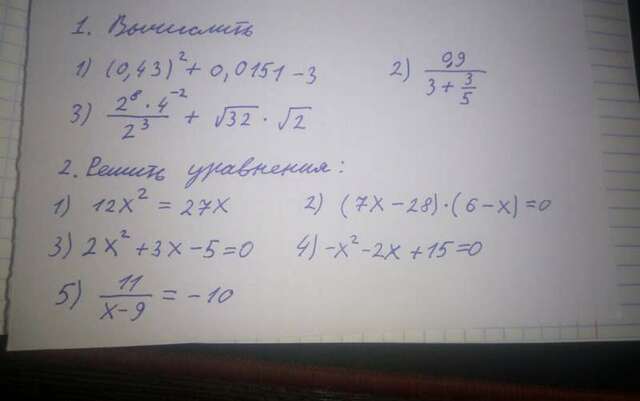 1. Вычислить
1) (0,43)² + 0,0151 - 3 2) 0,9 / (3 + 3/5)
3) (2⁸ · 4⁻²) / 2³ + √32 · √2
2. Решить уравнения:
1) 12x² = 27x 2) (7x - 28) · (6 - x) = 0
3) 2x² + 3x - 5 = 0 4) -x² - 2x + 15 = 0
5) 11 / (x - 9) = -10